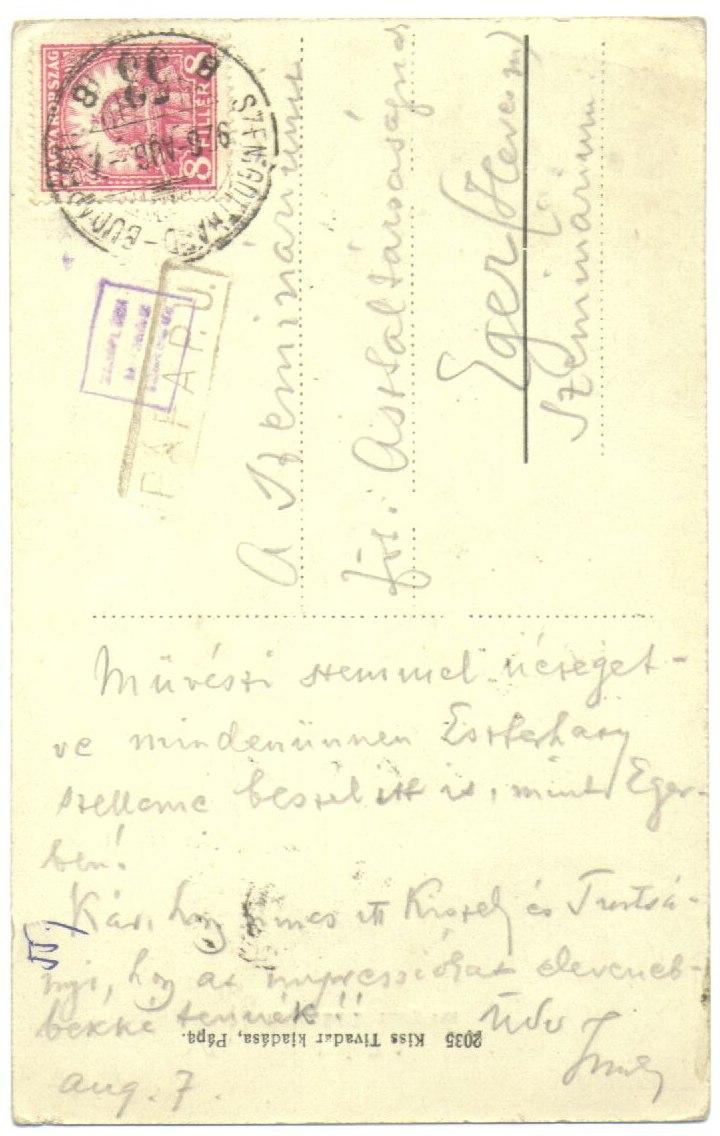 MAGYARORSZÁG
8 FILLÉR 8
SZENTGOTTHÁRD-BUDAPEST
53
B
PÁPA P. U.
A Szeminárium
Asztaltársaságnak
Eger (Heves m)
Szeminárium.
Művészi szemmel nézeget-
ve mindenünnen Eszterházy
szelleme beszél itt is, mint Eger-
ben!
Kár, hogy nincs itt és
hogy az impressziókat eleveneb-
bekké tennék!! Üdv
aug. 7.
2035 Kiss Tivadar kiadása, Pápa.